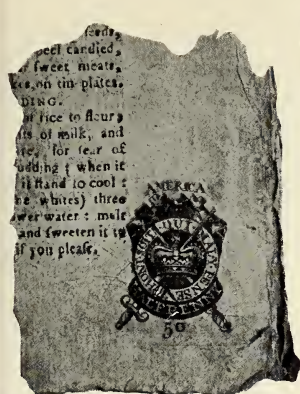 feeds,
peel candied,
ſweet meats,
on tin plates.
DING.
of rice to flour,
ts of milk, and
for fear of
udding; when it
ſtand to cool:
whites) three
wer water: melt
and ſweeten it to
if you pleaſe.
AMERICA
HONI SOIT QUI MAL Y PENSE
50